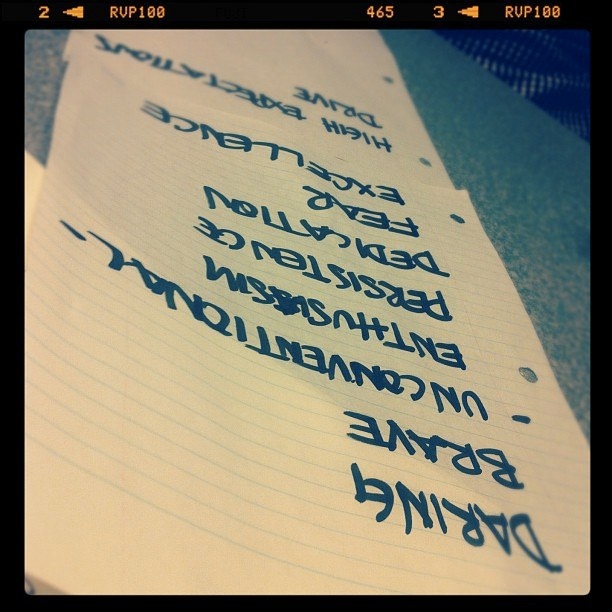 2 RVP100 465 3 RVP100
DARING
BRAVE
- UNCONVENTIONAL -
ENTHUSIASM
PERSISTENCE
DEDICATION
FEAR
EXCELLENCE
HIGH EXPECTATIONS
DRIVE